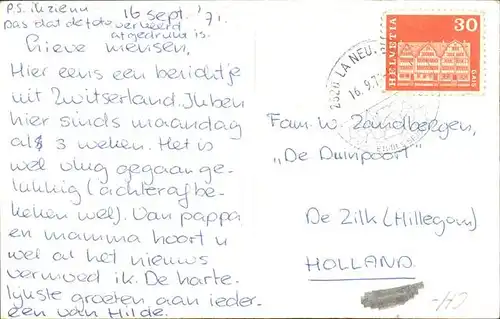 P.S. ik zie nu
Das dat de foto verkeerd
afgedrukt is.
16 sept. '71.
Lieve mensen,
Hier eens een berichtje
uit Zwitserland. Ik ben
hier sinds maandag
al 3 weken. Het is
wel vlug gegaan ge-
lukkig (achteraf be-
keken wel). Van pappa
en mamma hoort u
wel al het nieuws
vermoed ik. De harte-
lijkste groeten aan ieder-
een van Hilde.
HELVETIA 30
2520 LA NEU
16.9.7
Fam. W. Zandbergen,
"De Duinpoort"
De Zilk (Hillegom)
HOLLAND